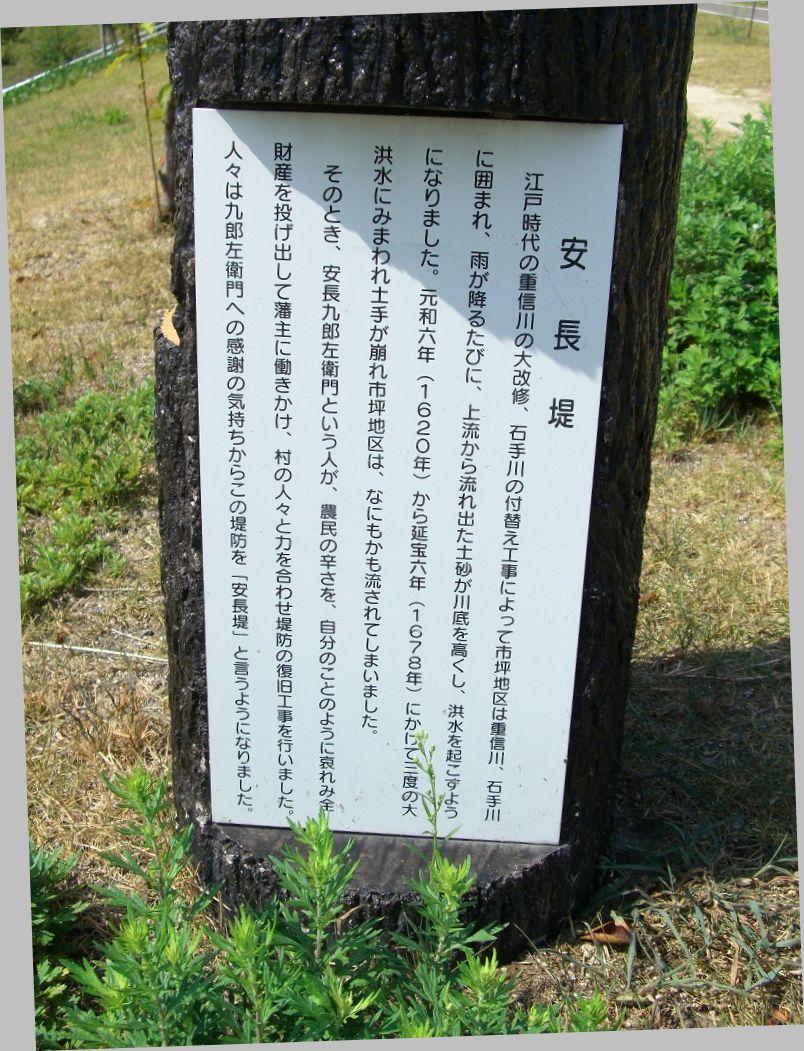 安長堤
江戸時代の重信川の大改修、石手川の付替え工事によって市坪地区は重信川、石手川
に囲まれ、雨が降るたびに、上流から流れ出た土砂が川底を高くし、洪水を起こすよう
になりました。元和六年（1620年）から延宝六年（1678年）にかけて三度の大
洪水にみまわれ土手が崩れ市坪地区は、なにもかも流されてしまいました。
そのとき、安長九郎左衛門という人が、農民の辛さを、自分のことのように哀れみ全
財産を投げ出して藩主に働きかけ、村の人々と力を合わせ堤防の復旧工事を行いました。
人々は九郎左衛門への感謝の気持ちからこの堤防を「安長堤」と言うようになりました。